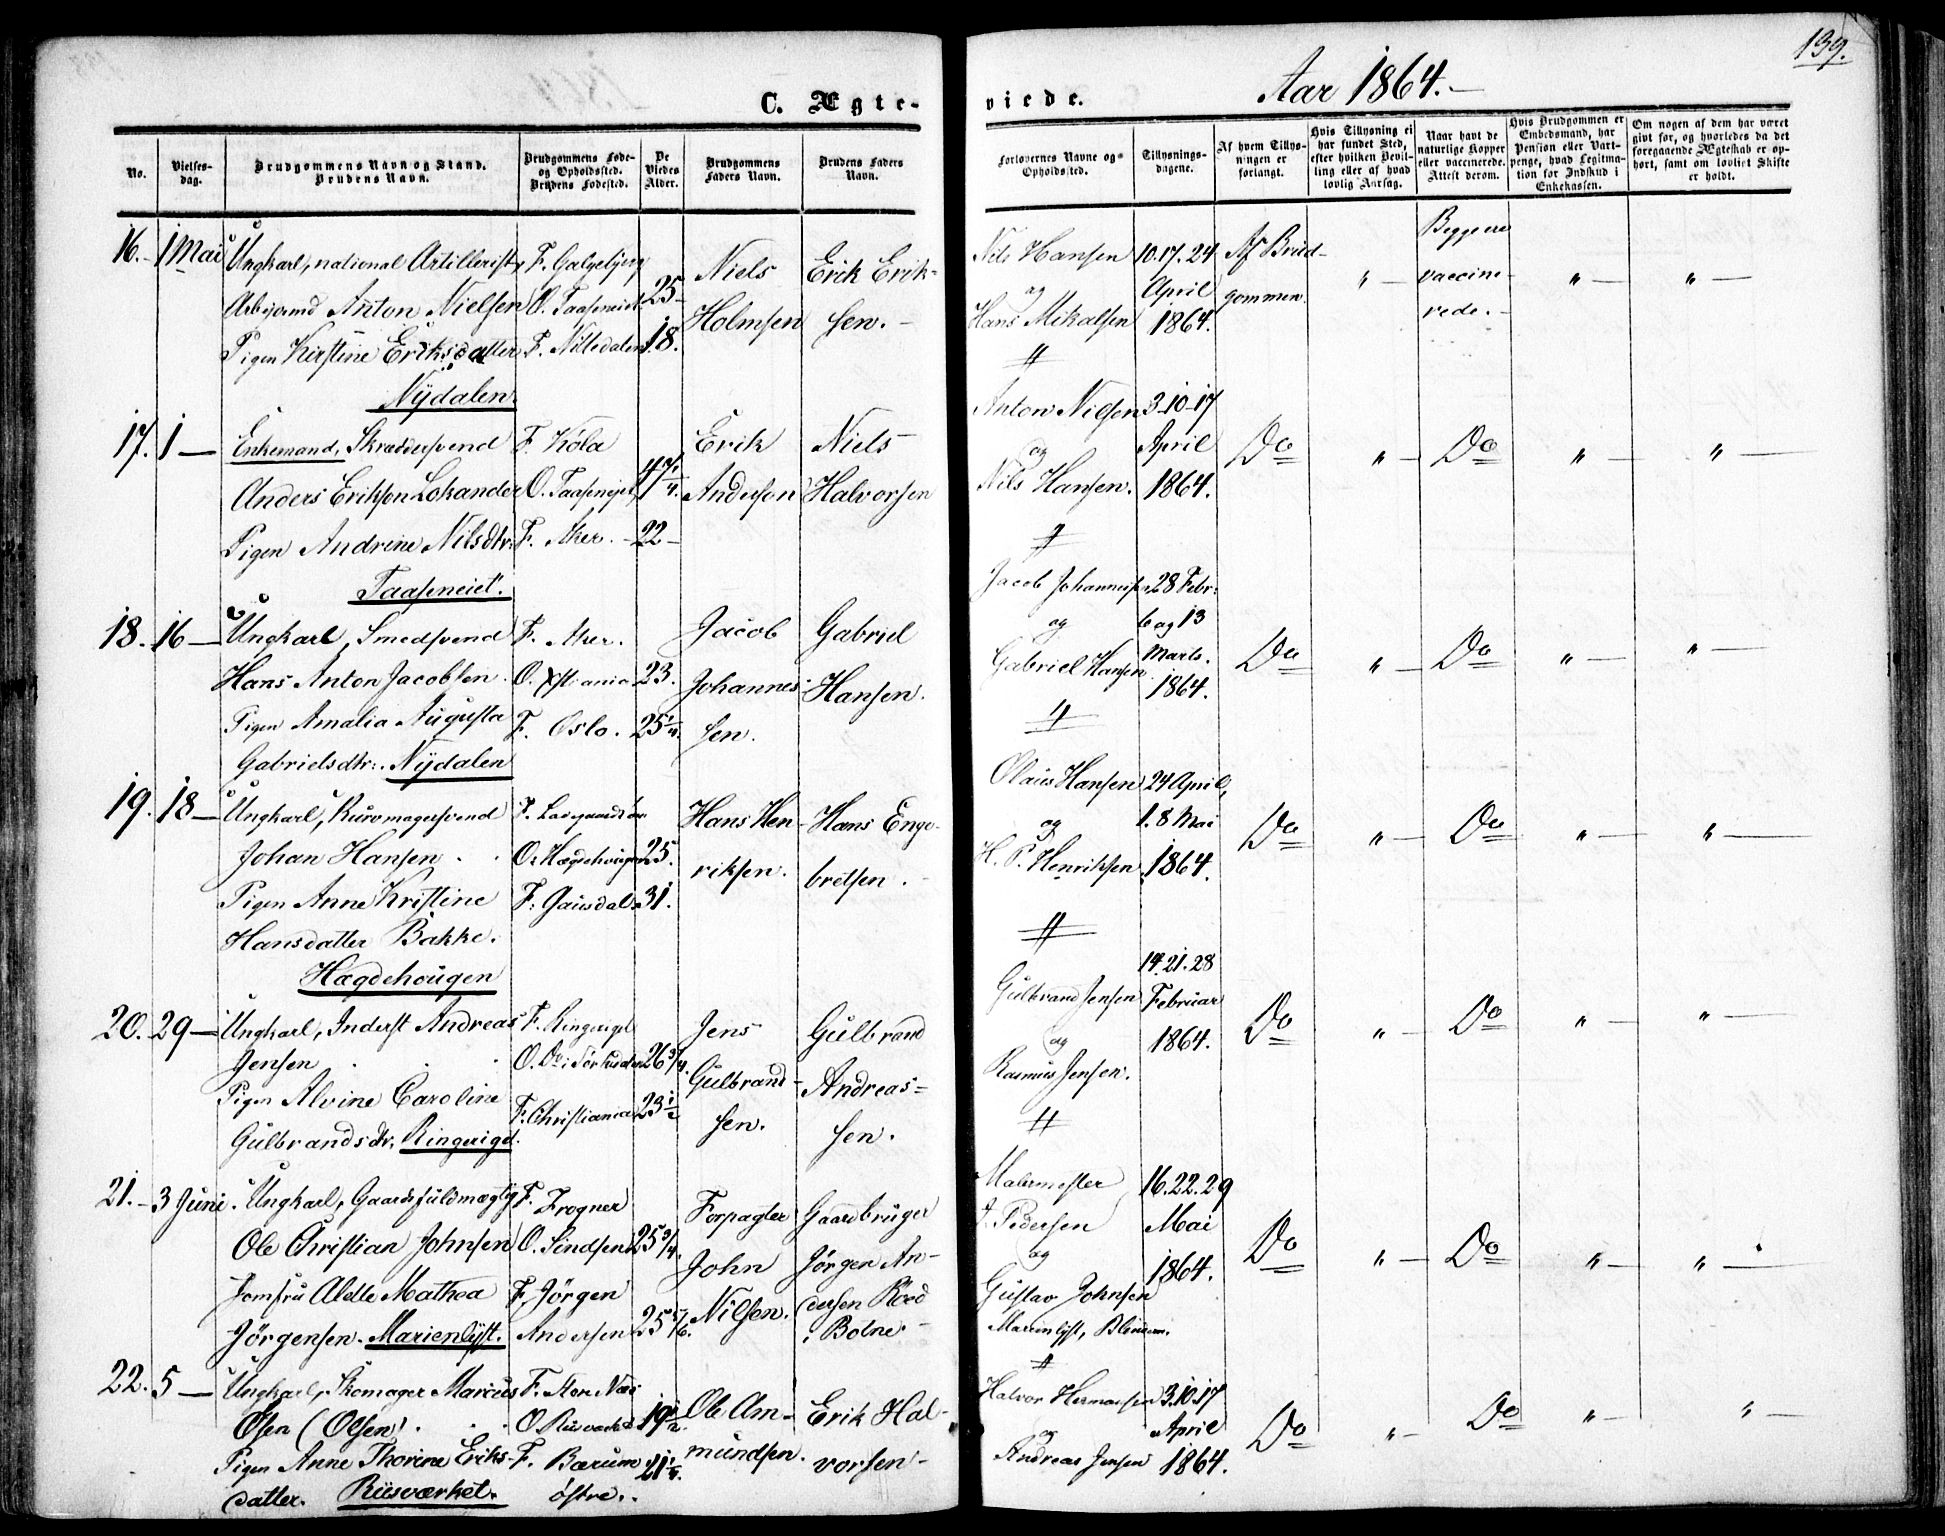 139.
C. Ægteviede. Aar 1864.
No.
Vielses-
dag.
Brudgommens Navn og Stand.
Brudens Navn.
Brudgommens Føde-
og Opholdssted.
Brudens Fødested.
De
Viedes
Alder.
Brudgommens
Faders Navn.
Brudens Faders
Navn.
Forlovernes Navne og
Opholdssted.
Tillysnings-
dagene.
Af hvem Tillys-
ningen er
forlangt.
Hvis Tillysning ei
har fundet Sted,
efter hvilken Bevil-
ling eller af hvad
lovlig Aarsag.
Naar havt de
naturlige Kopper
eller vaccinerede.
Attest derom.
Hvis Brudgommen er
Embedsmand, har
Pension eller Vart-
penge, hvad Legitima-
tion for Indskud i
Enkekassen.
Om nogen af dem har været
gift før, og hvorledes da det
foregaaende Ægteskab er op-
hørt, samt om lovligt Skifte
er holdt.
16. 1 Mai
Ungkarl, national Artillerist,
Arbeismd Anton Nielsen
Pigen Kirstine Eriksdatter
Nydalen.
F. Galgebjerg
O. Taaseneiet
F. Nittedalen
25
18.
Niels
Holmsen
Erik Erik-
sen.
Nils Hansen
og
Hans Mikalsen
10. 17. 24
April
1864.
Af Brud-
gommen.
"
Begge ere
vaccine-
rede.
"
"
17. 1
Enkemand, Skrædersvend
Anders Eriksen Lokander
Pigen Andrine Nilsdtr.
Taaseneiet.
F. Kola
O. Taaseneiet
F. Aker.
22
Erik
Andersen
Niels
Halvorsen
Anton Nilsen
og
Nils Hansen.
3-10-17
April
1864.
Do
"
Do
"
"
18. 16
Ungkarl, Smedsvend
Hans Anton Jacobsen
Pigen Amalia Augusta
Gabrielsdtr. Nydalen
F. Aker.
O. Xstiania
F. Oslo.
23.
25 1/4.
Jacob
Johannes-
sen.
Gabriel
Hansen.
Jacob Johannessen
og
Gabriel Hansen
28 Febr.
6 og 13
Marts.
1864.
Do
"
Do
"
"
19. 18
Ungkarl, Buromagersvend
Johan Hansen
Pigen Anne Kristine
Hansdatter Bakke.
Hægdehougen
O. Hægdehougen
F. Gausdal
25.
31.
Hans Hen-
riksen.
Hans Enge-
bretsen.
Olaus Hansen
og
H. P. Henriksen
24 April,
1. 8 Mai
1864.
Do
"
Do
"
"
20. 29
Ungkarl, Inderst Andreas
Jensen
Pigen Alvine Caroline
Gulbrandsdtr. Ringeriget.
F. Ringeriget
F. Christiania
26 3/4.
23 1/2
Jens
Gulbrand-
sen.
Gulbrand
Andreas-
sen.
Gulbrand Jensen
og
Rasmus Jensen.
14. 21. 28
Februar
1864.
Do
"
Do
"
"
21. 3 Juni.
Ungkarl, Gaardsfuldmægtig
Ole Christian Johnsen
Jomfru Alette Mathea
Jørgensen. Marienlyst.
F. Frogner
F. Jørgen
Andersen
25 3/4.
25 5/6.
Forpagter
John
Nilsen.
Gaardbruger
Jørgen An-
dersen Røed
i Botne.
Malermester
J. Pedersen
og
Gustav Johnsen
Marienlyst,
16. 22. 29
Mai
1864.
Do
"
Do
"
"
22. 5
Ungkarl, Skomager Marcus
Osen (Olsen)
Pigen Anne Thorine Eriks-
datter. Riisværket.
F. Store Næs
O. Riisværket
F. Bærum
østre.
19 1/2.
21 1/4.
Ole Am-
mundsen.
Erik Hal-
vorsen
Halvor Hermansen
og
Andreas Jensen
3. 10. 17
April
1864.
Do
"
Do
"
"